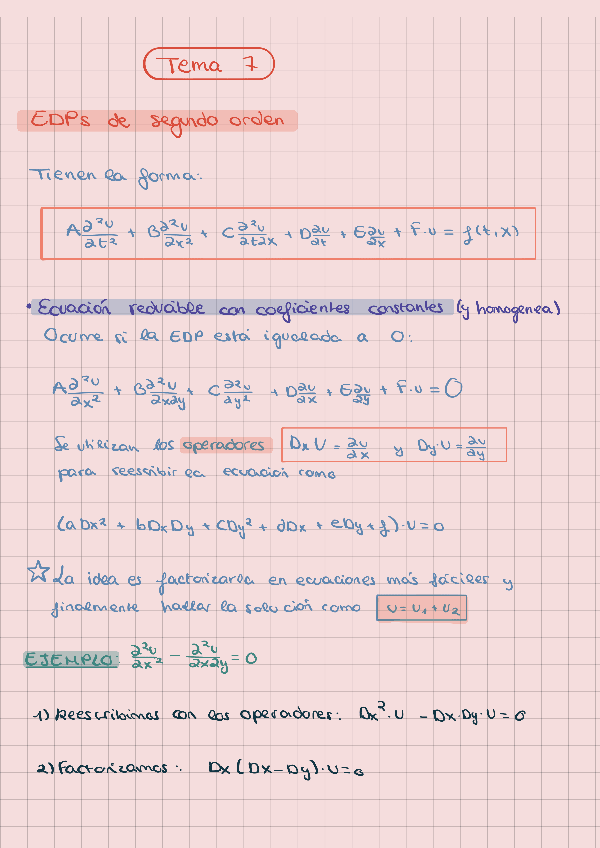 Tema 7
EDPs de segundo orden
Tienen la forma:
A ∂²u/∂t² + B ∂²u/∂x² + C ∂²u/∂t∂x + D ∂u/∂t + E ∂u/∂x + F·u = f(t,x)
• Ecuación reducible con coeficientes constantes (y homogenea)
Ocurre si la EDP está igualada a 0:
A ∂²u/∂x² + B ∂²u/∂x∂y + C ∂²u/∂y² + D ∂u/∂x + E ∂u/∂y + F·u = 0
Se utilizan los operadores Dx U = ∂u/∂x y Dy·U = ∂u/∂y
para reescribir la ecuación como
(aDx² + bDxDy + CDy² + dDx + eDy + f)·U = 0
☆ La idea es factorizarla en ecuaciones más fáciles y
finalmente hallar la solución como u = u₁ + u₂
EJEMPLO: ∂²u/∂x² − ∂²u/∂x∂y = 0
1) Reescribimos con los operadores: Dx²·U − Dx·Dy·U = 0
2) Factorizamos: Dx (Dx − Dy)·U = 0